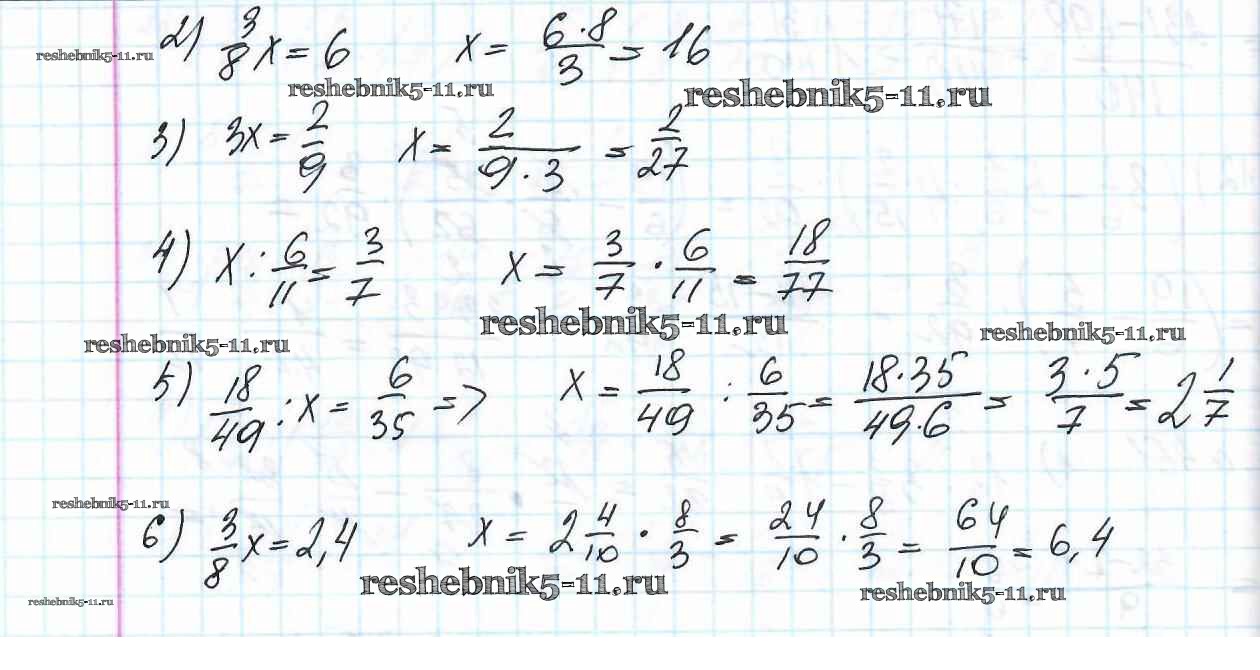 2) 3/8 x = 6 x = 6·8/3 = 16
reshebnik5-11.ru
reshebnik5-11.ru
reshebnik5-11.ru
3) 3x = 2/9 x = 2/(9·3) = 2/27
4) x : 6/11 = 3/7 x = 3/7 · 6/11 = 18/77
reshebnik5-11.ru
reshebnik5-11.ru
reshebnik5-11.ru
5) 18/49 : x = 6/35 => x = 18/49 : 6/35 = 18·35/49·6 = 3·5/7 = 2 1/7
reshebnik5-11.ru
6) 3/8 x = 2,4 x = 2 4/10 · 8/3 = 24/10 · 8/3 = 64/10 = 6,4
reshebnik5-11.ru
reshebnik5-11.ru
reshebnik5-11.ru